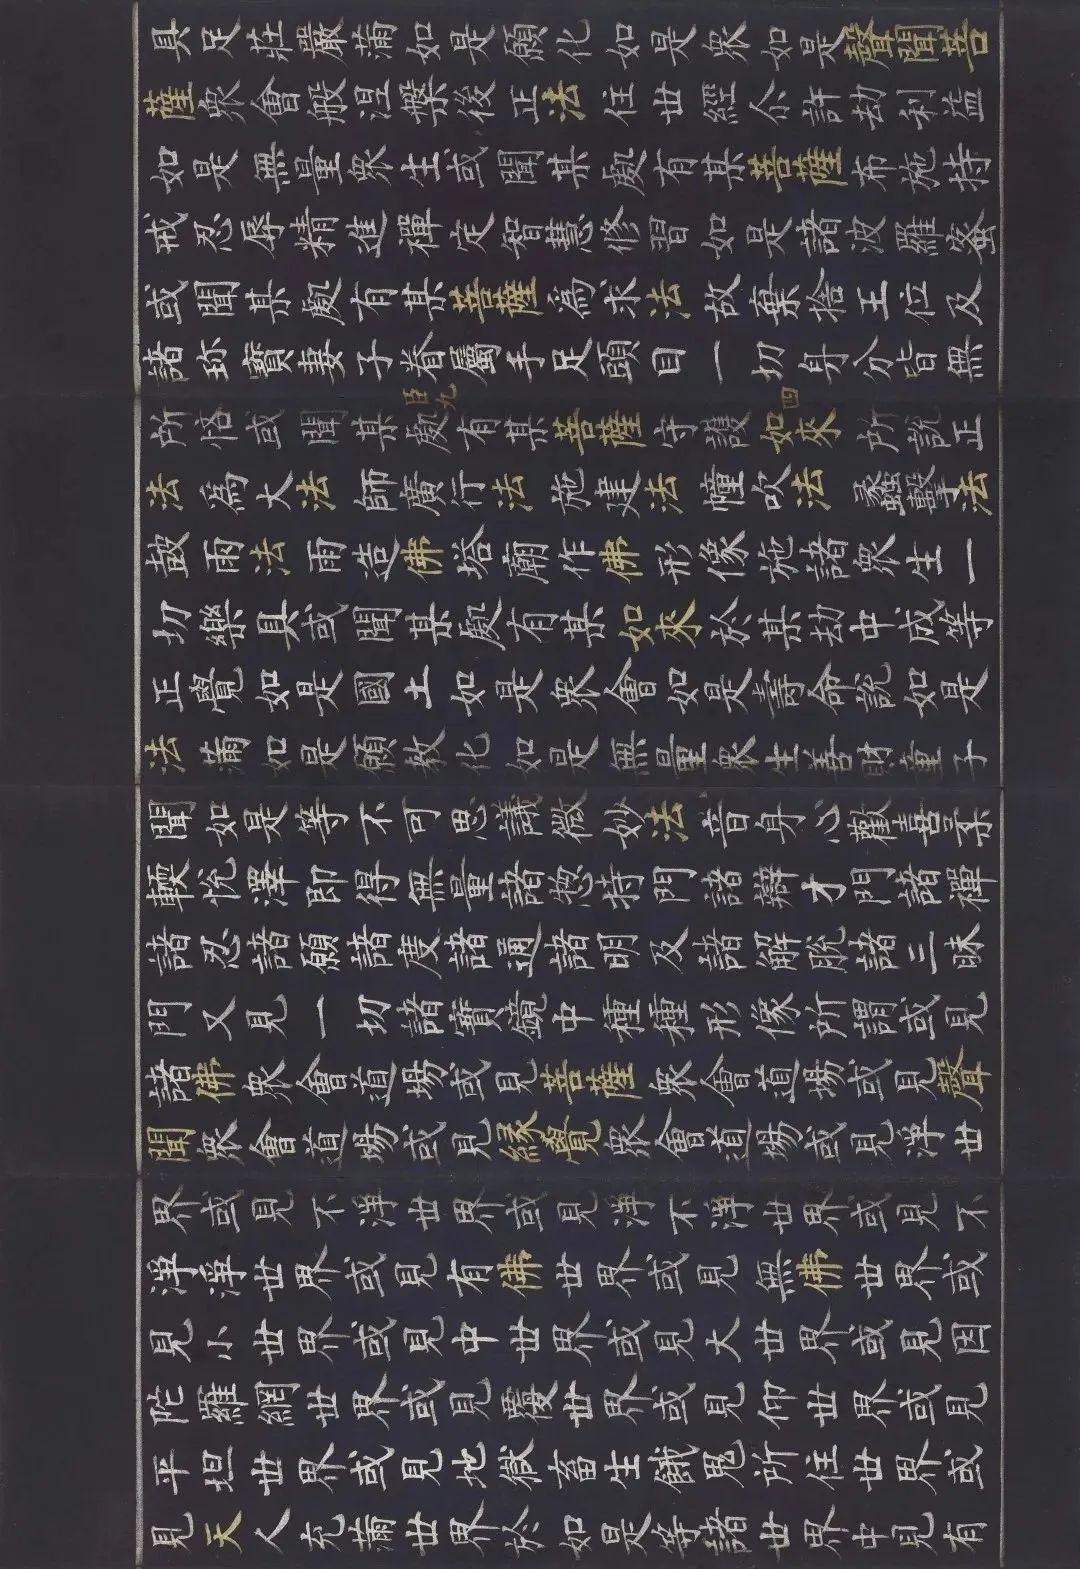 具足莊嚴滿如是願化如是衆如是聲聞菩
薩衆會般涅槃後正法住世經尒許劫利益
如是無量衆生或聞某處有某菩薩布施持
戒忍辱精進禪定智慧修習如是諸波羅蜜
或聞某處有某菩薩為求法故棄捨王位及
諸珎寶妻子眷屬手足頭目一切身分皆無
臣九 四
所悋或聞某處有某菩薩守護如來所說正
法為大法師廣行法施建法幢吹法蠡擊法
鼓雨法雨造佛塔廟作佛形像施諸衆生一
切樂具或聞某處有某如來於某劫中成等
正覺如是國土如是衆會如是壽命說如是
法滿如是願教化如是無量衆生善財童子
聞如是等不可思議微妙法音身心歡喜柔
輭悅澤即得無量諸惣持門諸辯才門諸禪
諸忍諸願諸度諸通諸明及諸解脫諸三昧
門又見一切諸寶鏡中種種形像所謂或見
諸佛衆會道場或見菩薩衆會道場或見聲
聞衆會道場或見緣覺衆會道場或見淨世
界或見不淨世界或見淨不淨世界或見不
淨淨世界或見有佛世界或見無佛世界或
見小世界或見中世界或見大世界或見因
陀羅網世界或見覆世界或見仰世界或見
平坦世界或見地獄畜生餓鬼所住世界或
見天人充滿世界於如是等諸世界中見有